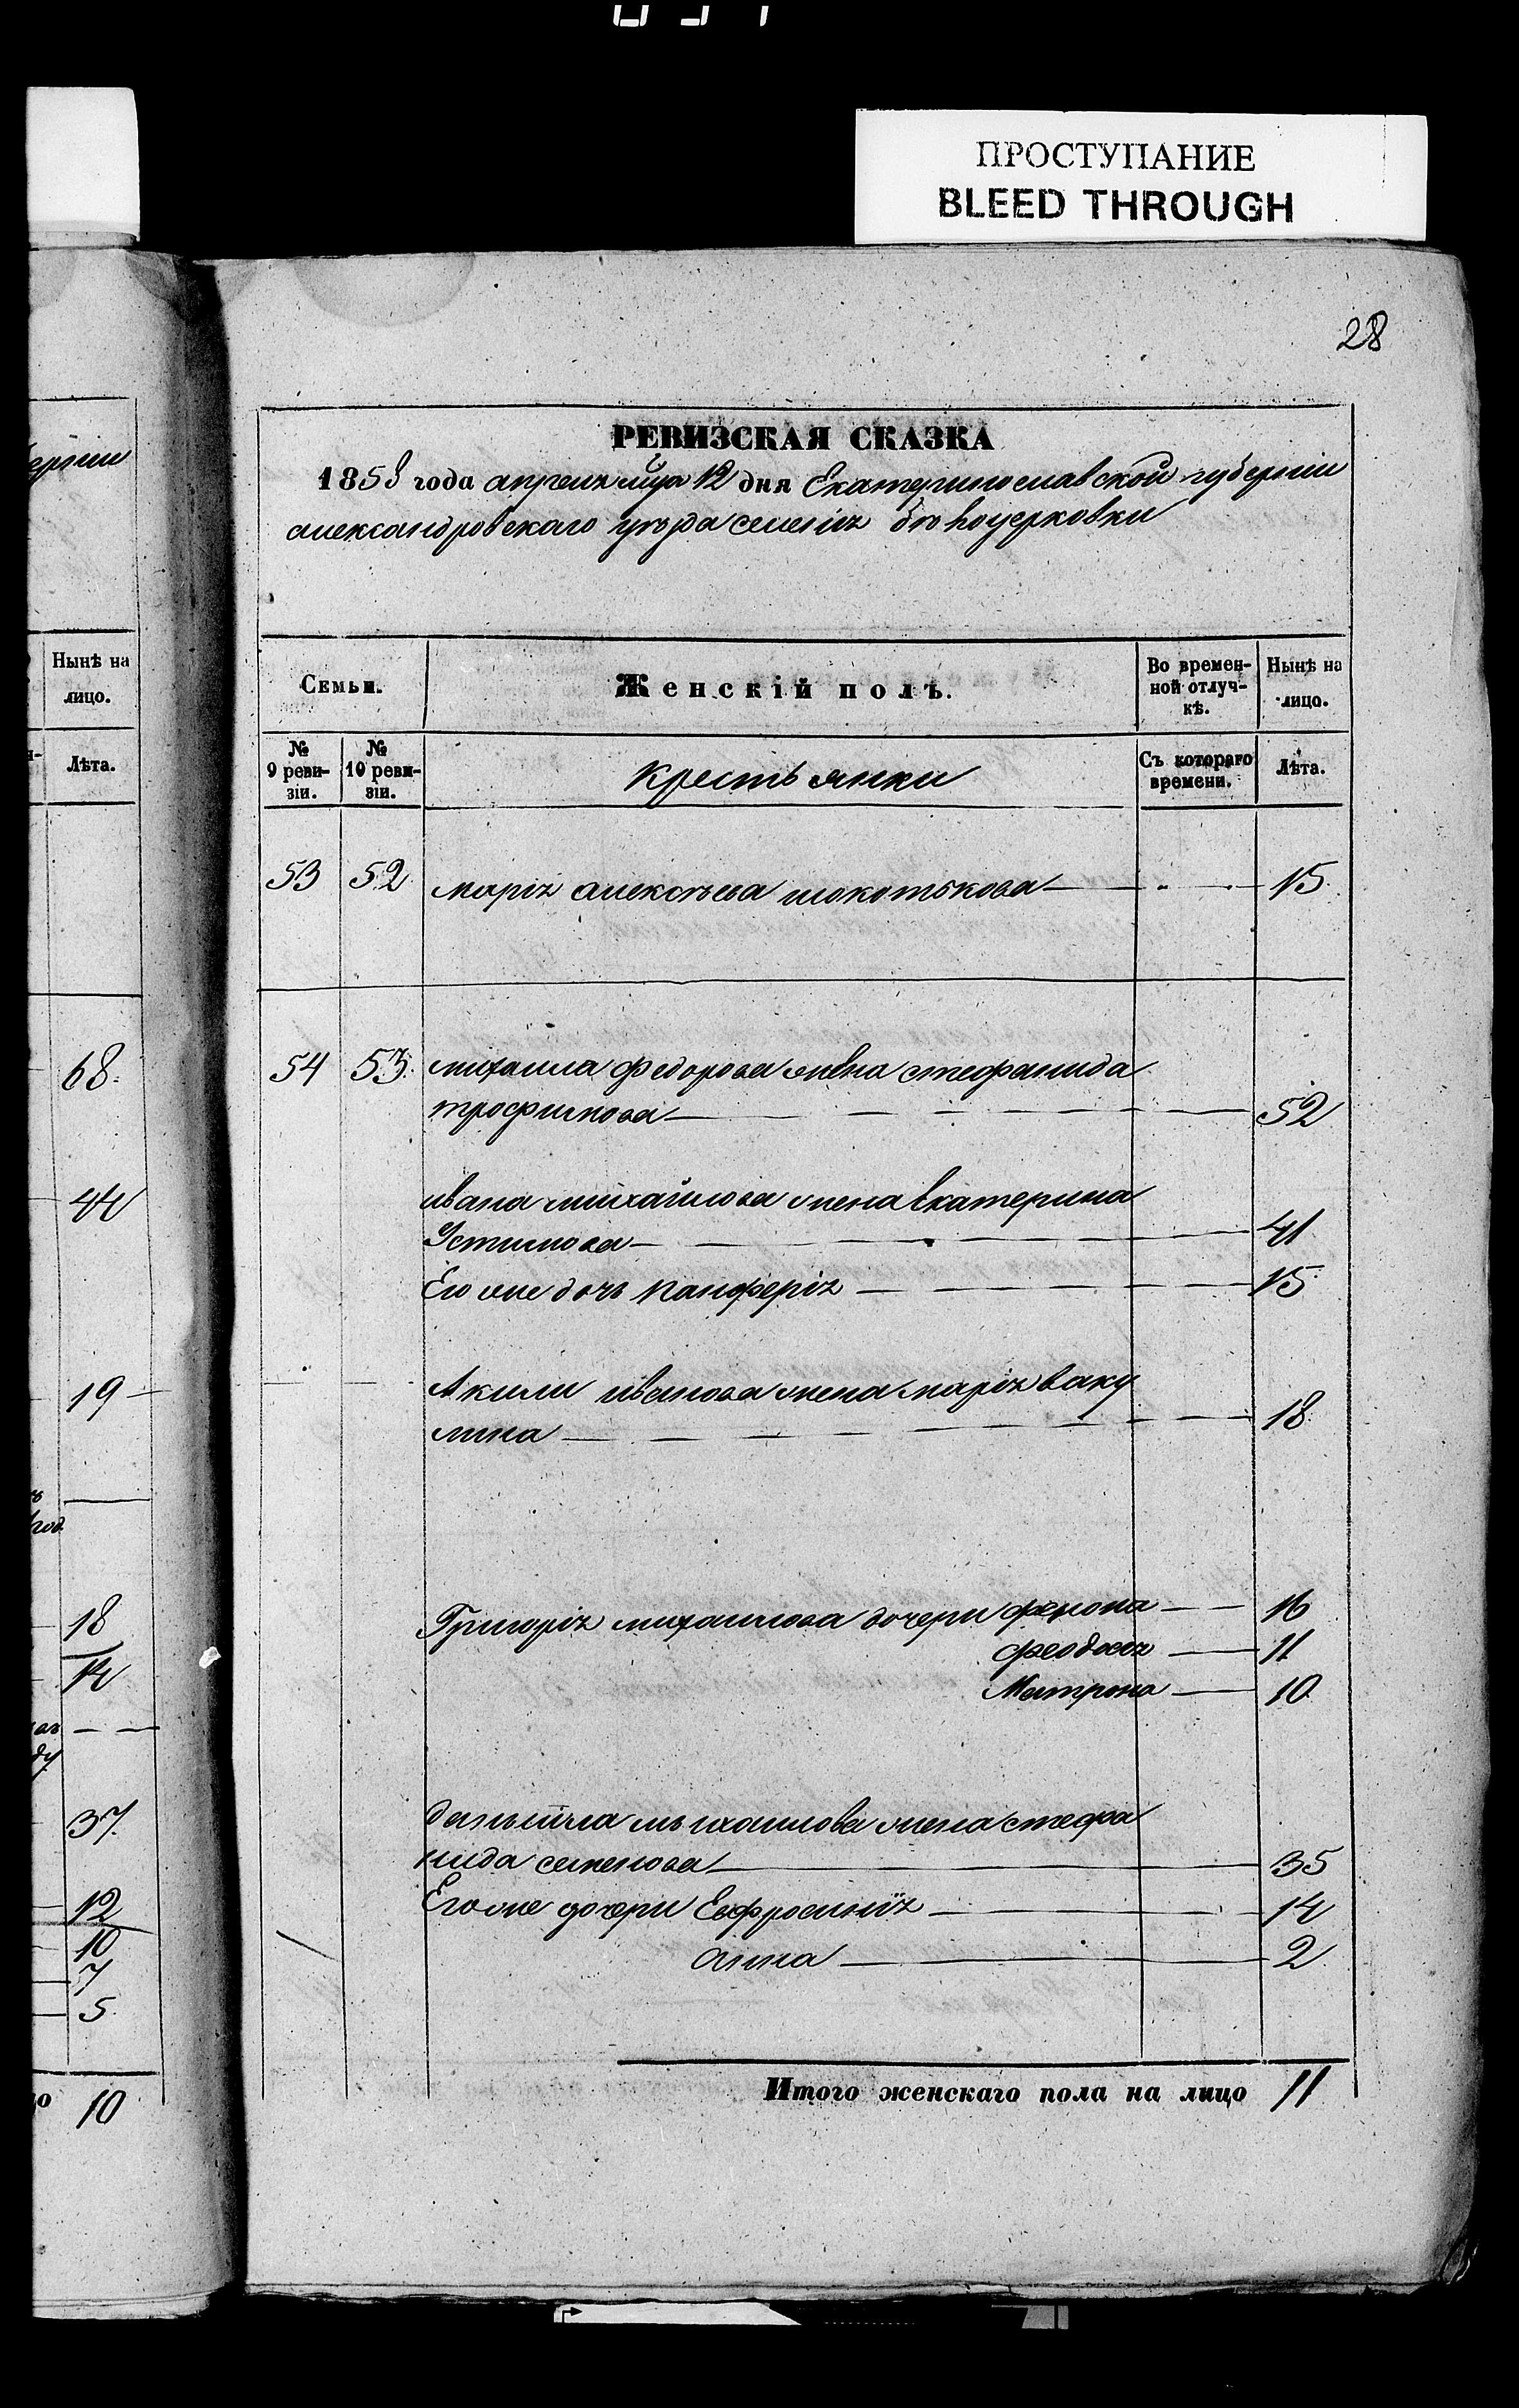 ПРОСТУПАНИЕ
BLEED THROUGH
28
РЕВИЗСКАЯ СКАЗКА
1858 года апреля мца 12 дня Екатеринославской губернiи
александровскаго уѣзда селенiя
Семьи.
Женскiй полъ.
Во времен-
ной отлуч-
кѣ.
Нынѣ на
лицо.
№
9 реви-
зiи.
№
10 реви-
зiи.
крестьянки
Съ котораго
времени.
Лѣта.
53 52 марiя алексѣева — " — 15
54 53 михаила федорова жена стефанида
трофимова — 52
ивана михайлова жена Екатерина
Устимова — 41
Его же дочь — 15
Акилы иванова жена марiя ваку
лина — 18
Григорiя михаилова дочери — 16
феодосiя — 11
Матрона — 10
даныила михаилова жена стефа
нида семенова — 35
Его же дочери Евфросинiя — 14
анна — 2
Итого женскаго пола на лицо 11
ернiи
Нынѣ на
лицо.
Лѣта.
68
44
19
год
18
14
37
12
10
7
5
10